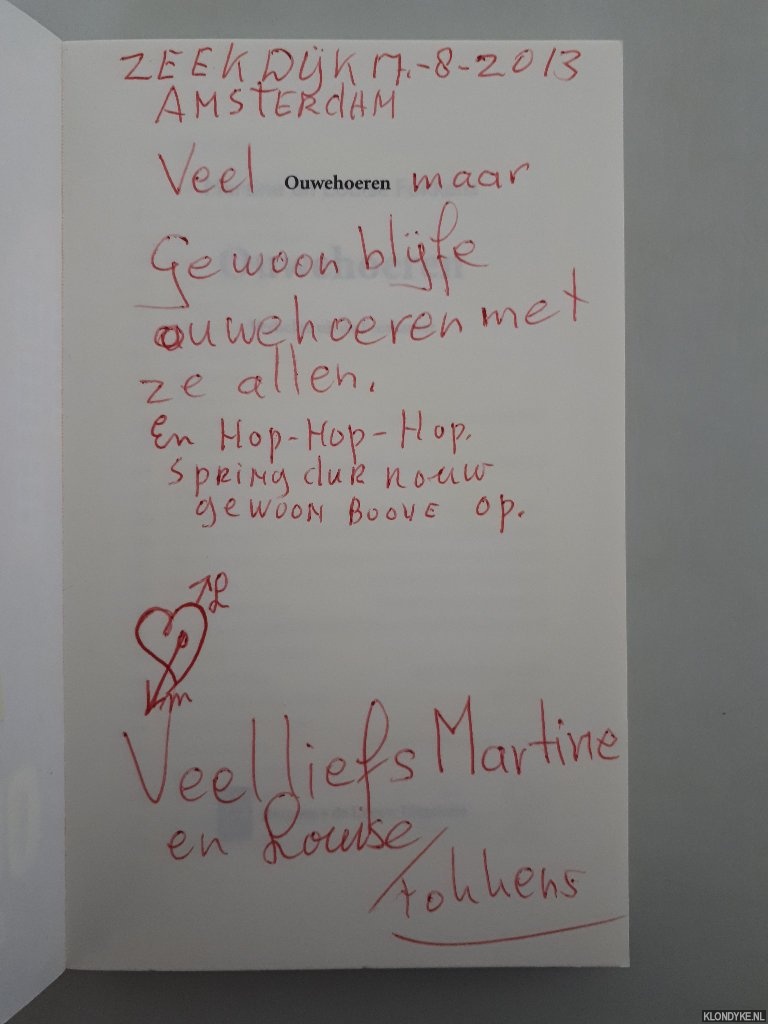 ZEEKDIJK 17.-8-2013
AMSTERDAM
Veel Ouwehoeren maar
Gewoon blijfe
ouwehoeren met
ze allen.
En Hop-Hop-Hop.
Spring dur nouw
gewoon BOOVE op.
L
m
Veel liefs Martine
en Louise
Fokkens
KLONDYKE.NL